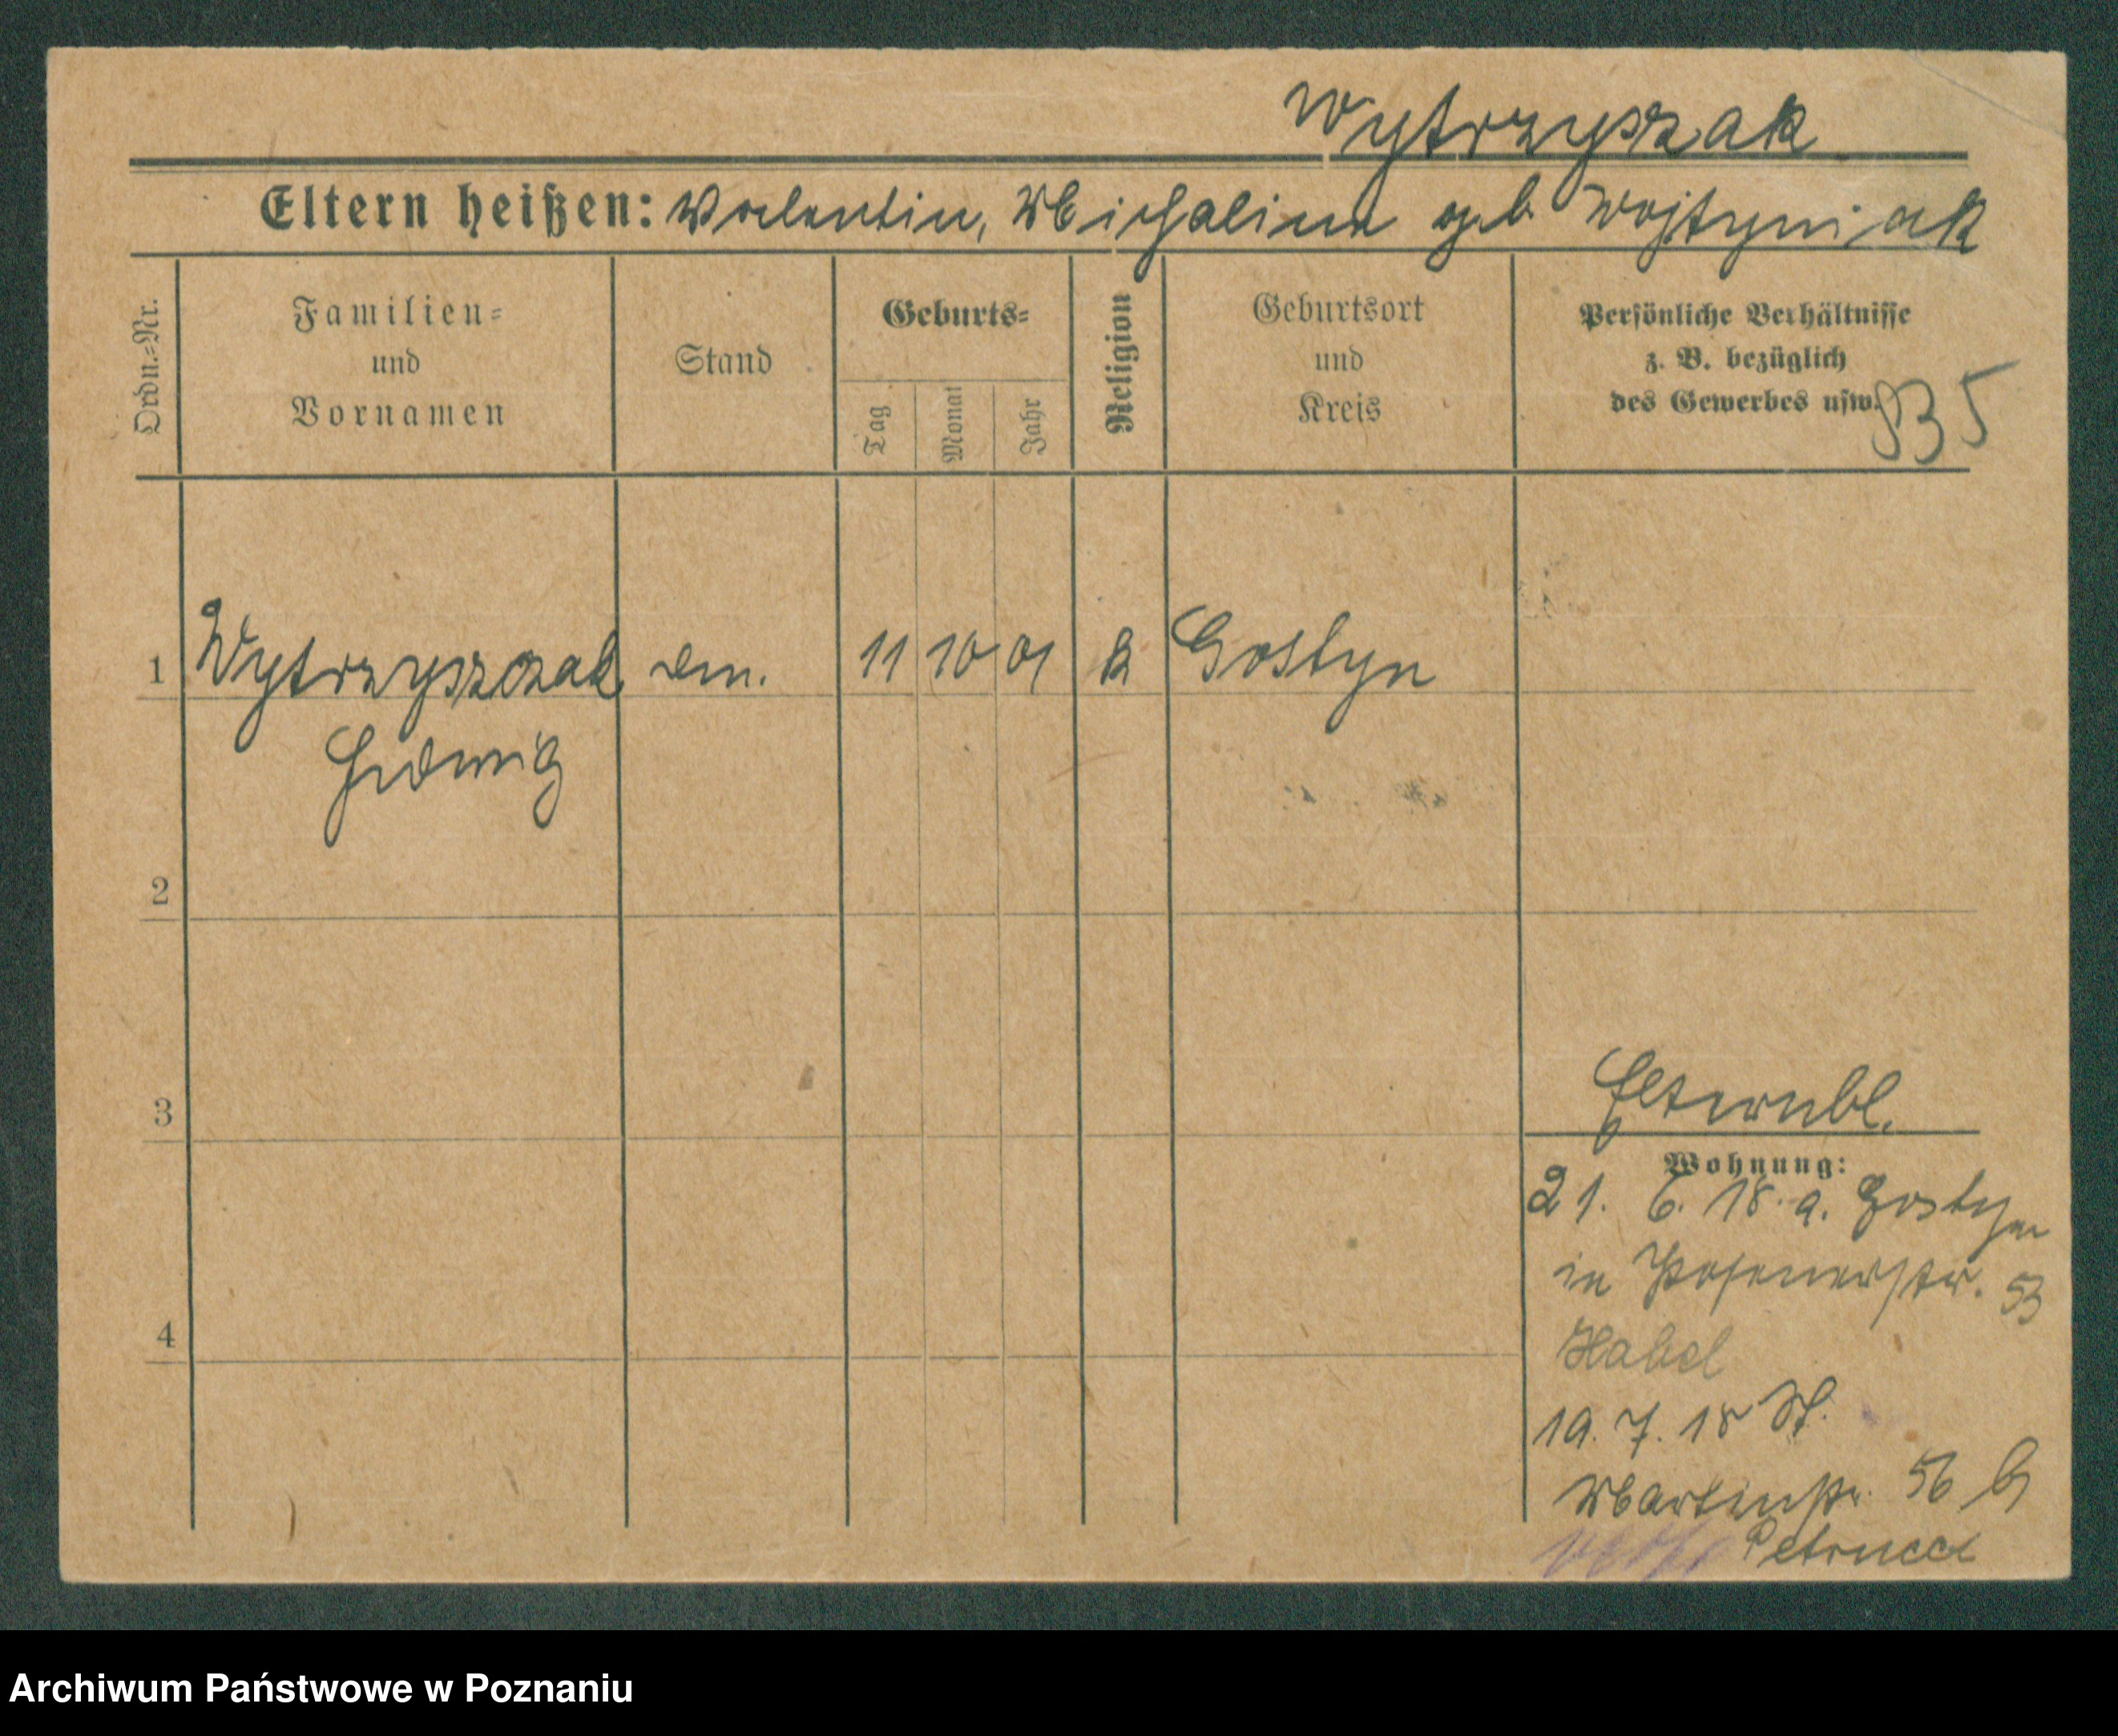 Wytrzyszak
Eltern heißen: Valentin, Michalina geb. Wojtyniak
Ordn.=Nr.
Familien=
und
Vornamen
Stand
Geburts=
Tag
Monat
Jahr
Religion
Geburtsort
und
Kreis
Persönliche Verhältnisse
z. B. bezüglich
des Gewerbes usw.
835
1 Wytrzyszczak 11 10 01 k Gostyn
Hedwig
2
3
Elternbl.
Wohnung:
21. 6. 18. a. Gostyn
in Posenerstr. 53
4
Habel
19. 7. 18 St.
Martinstr. 56
Petrucci
Archiwum Państwowe w Poznaniu